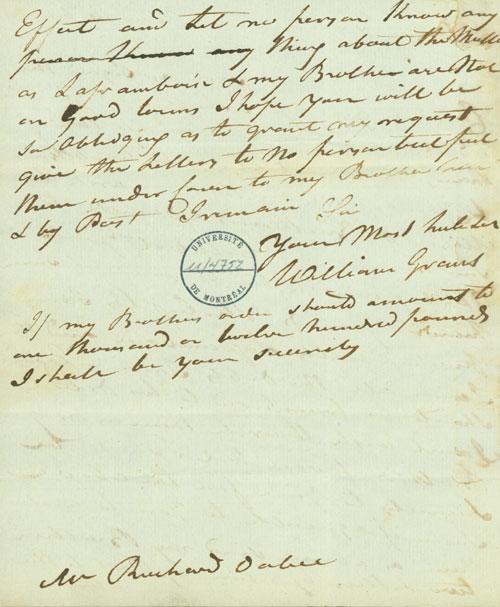 Effect and let no person know any
person known any thing about the Matter
as Laframboise & my Brother are Not
on Good terms I hope you will be
so Obligeing as to grant my request
give the Letters to No person but put
them under Cover to my Brother
& by Post I remain Sir
Your Most huble Ser
William Grant
UNIVERSITÉ
11/4757
DE MONTRÉAL
If my Brothers order should amount to
one thousand or twelve hundred pounds
I shall be your security
Mr Richard Dobie